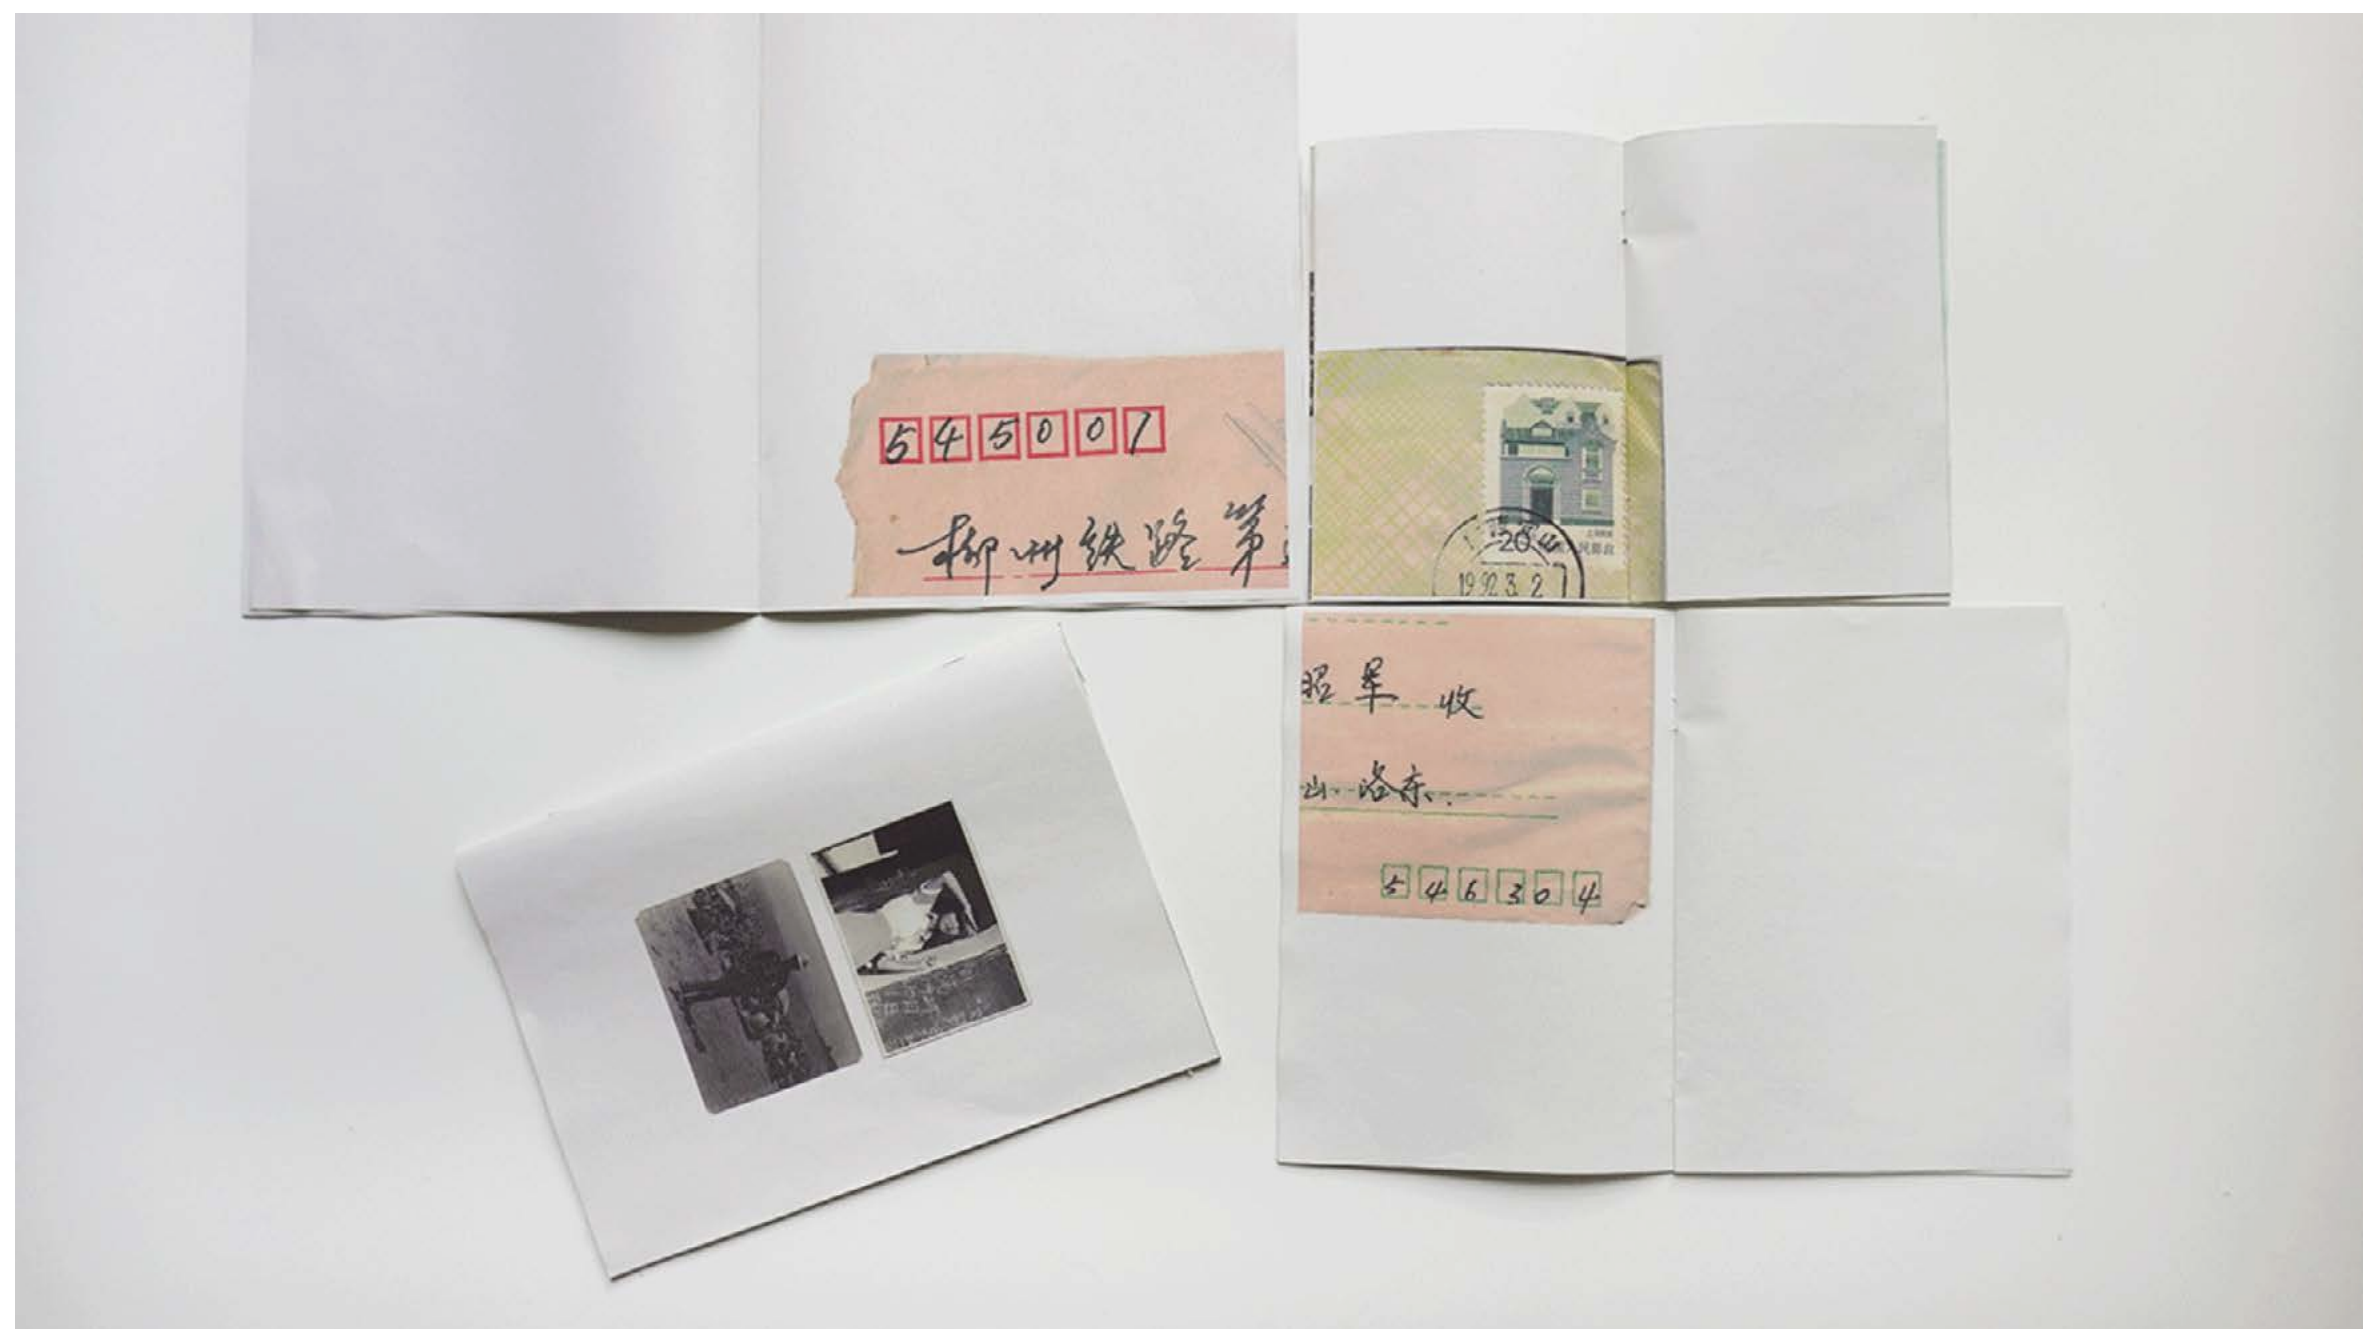 545001
柳州铁路第
20
1992.3.2
昭 旱 收
山·洛东.
546304